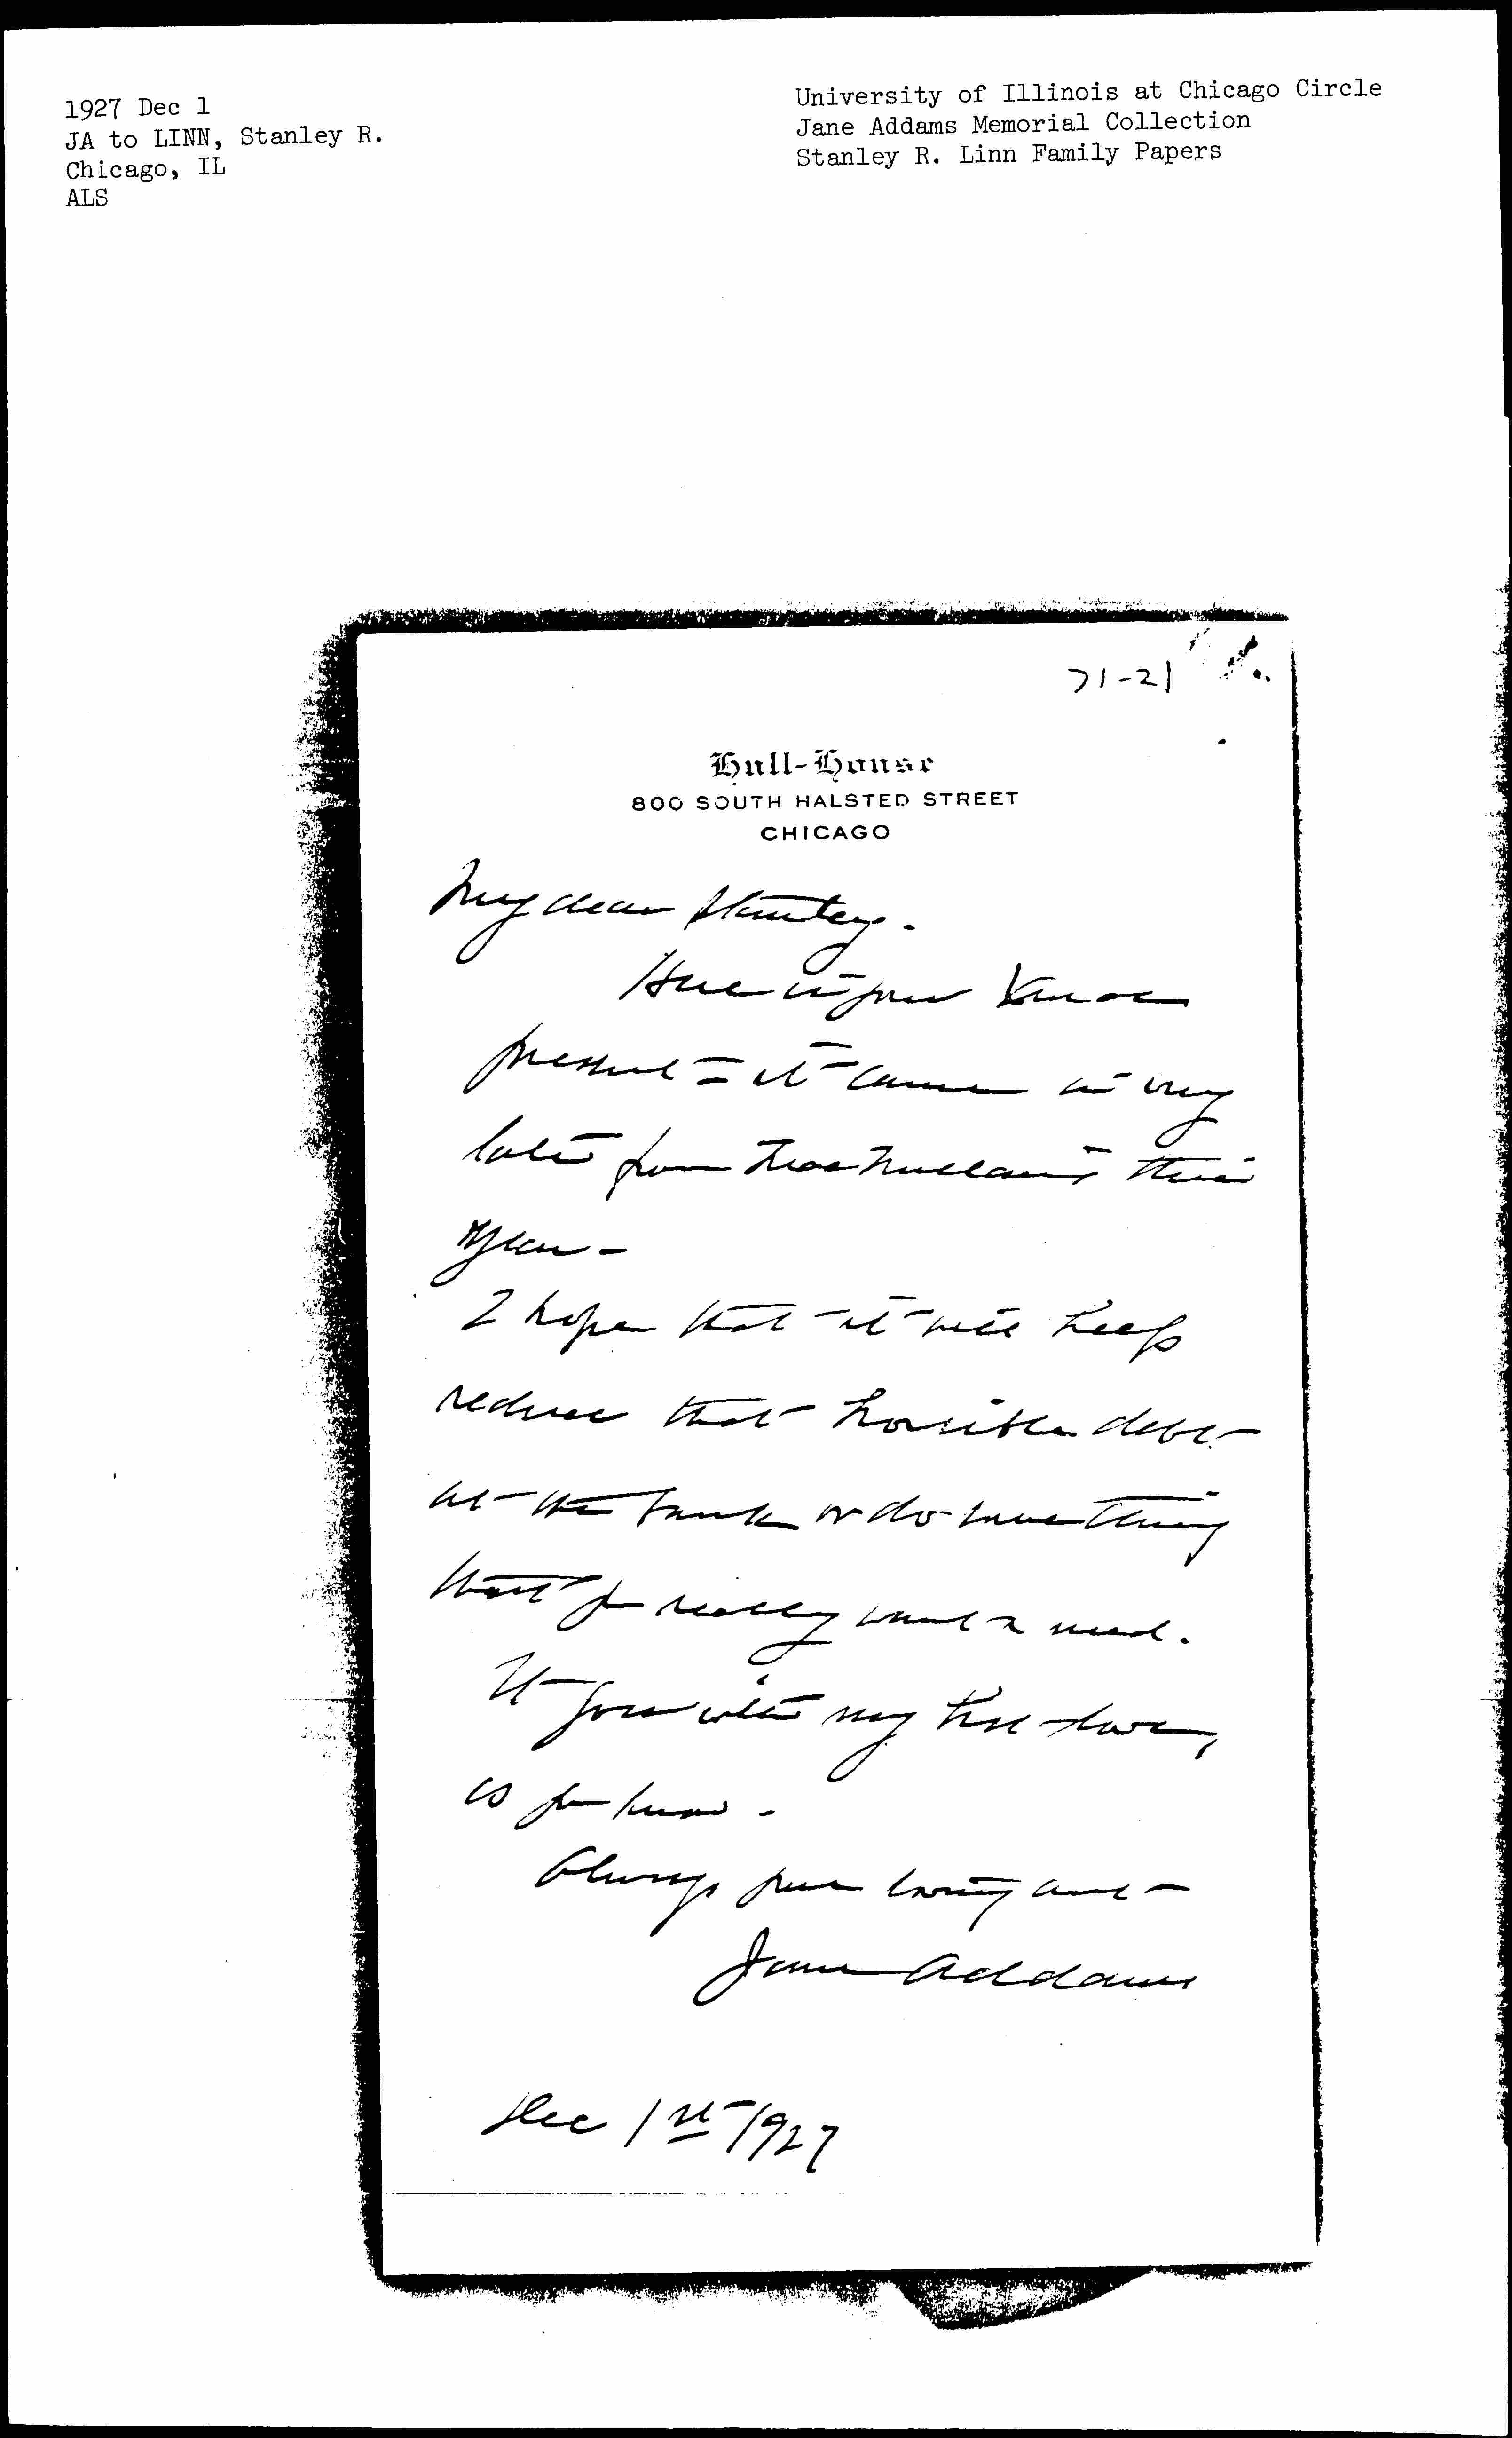 1927 Dec 1
JA to LINN, Stanley R.
Chicago, IL
ALS
University of Illinois at Chicago Circle
Jane Addams Memorial Collection
Stanley R. Linn Family Papers
71-21
Hull-House
800 SOUTH HALSTED STREET
CHICAGO
My dear Stanley.
Here is your Xmas
present = it came in very
late from this
year -
I hope that it will help
reduce that horrible debt
at the bank or do something
that you really want & need.
It goes with my best love,
as you know -
Always your loving aunt -
Jane Addams
Dec 1st 1927